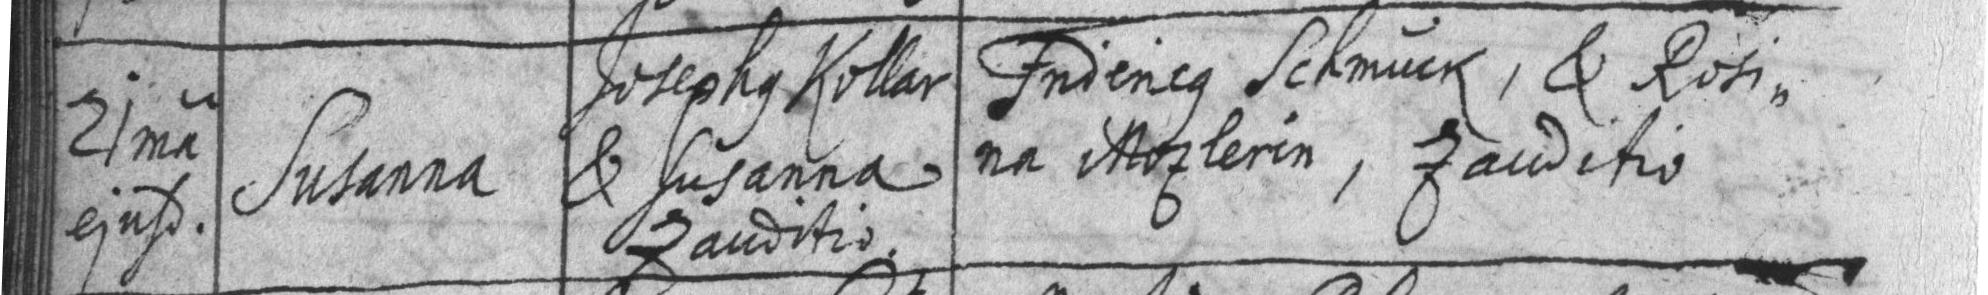 21mă
ejusd.
Susanna
Josephg Kollar
& Susanna
Zauditio.
Fridericg Schmŭck, & Rosi„
na Mozlerin, Zauditio